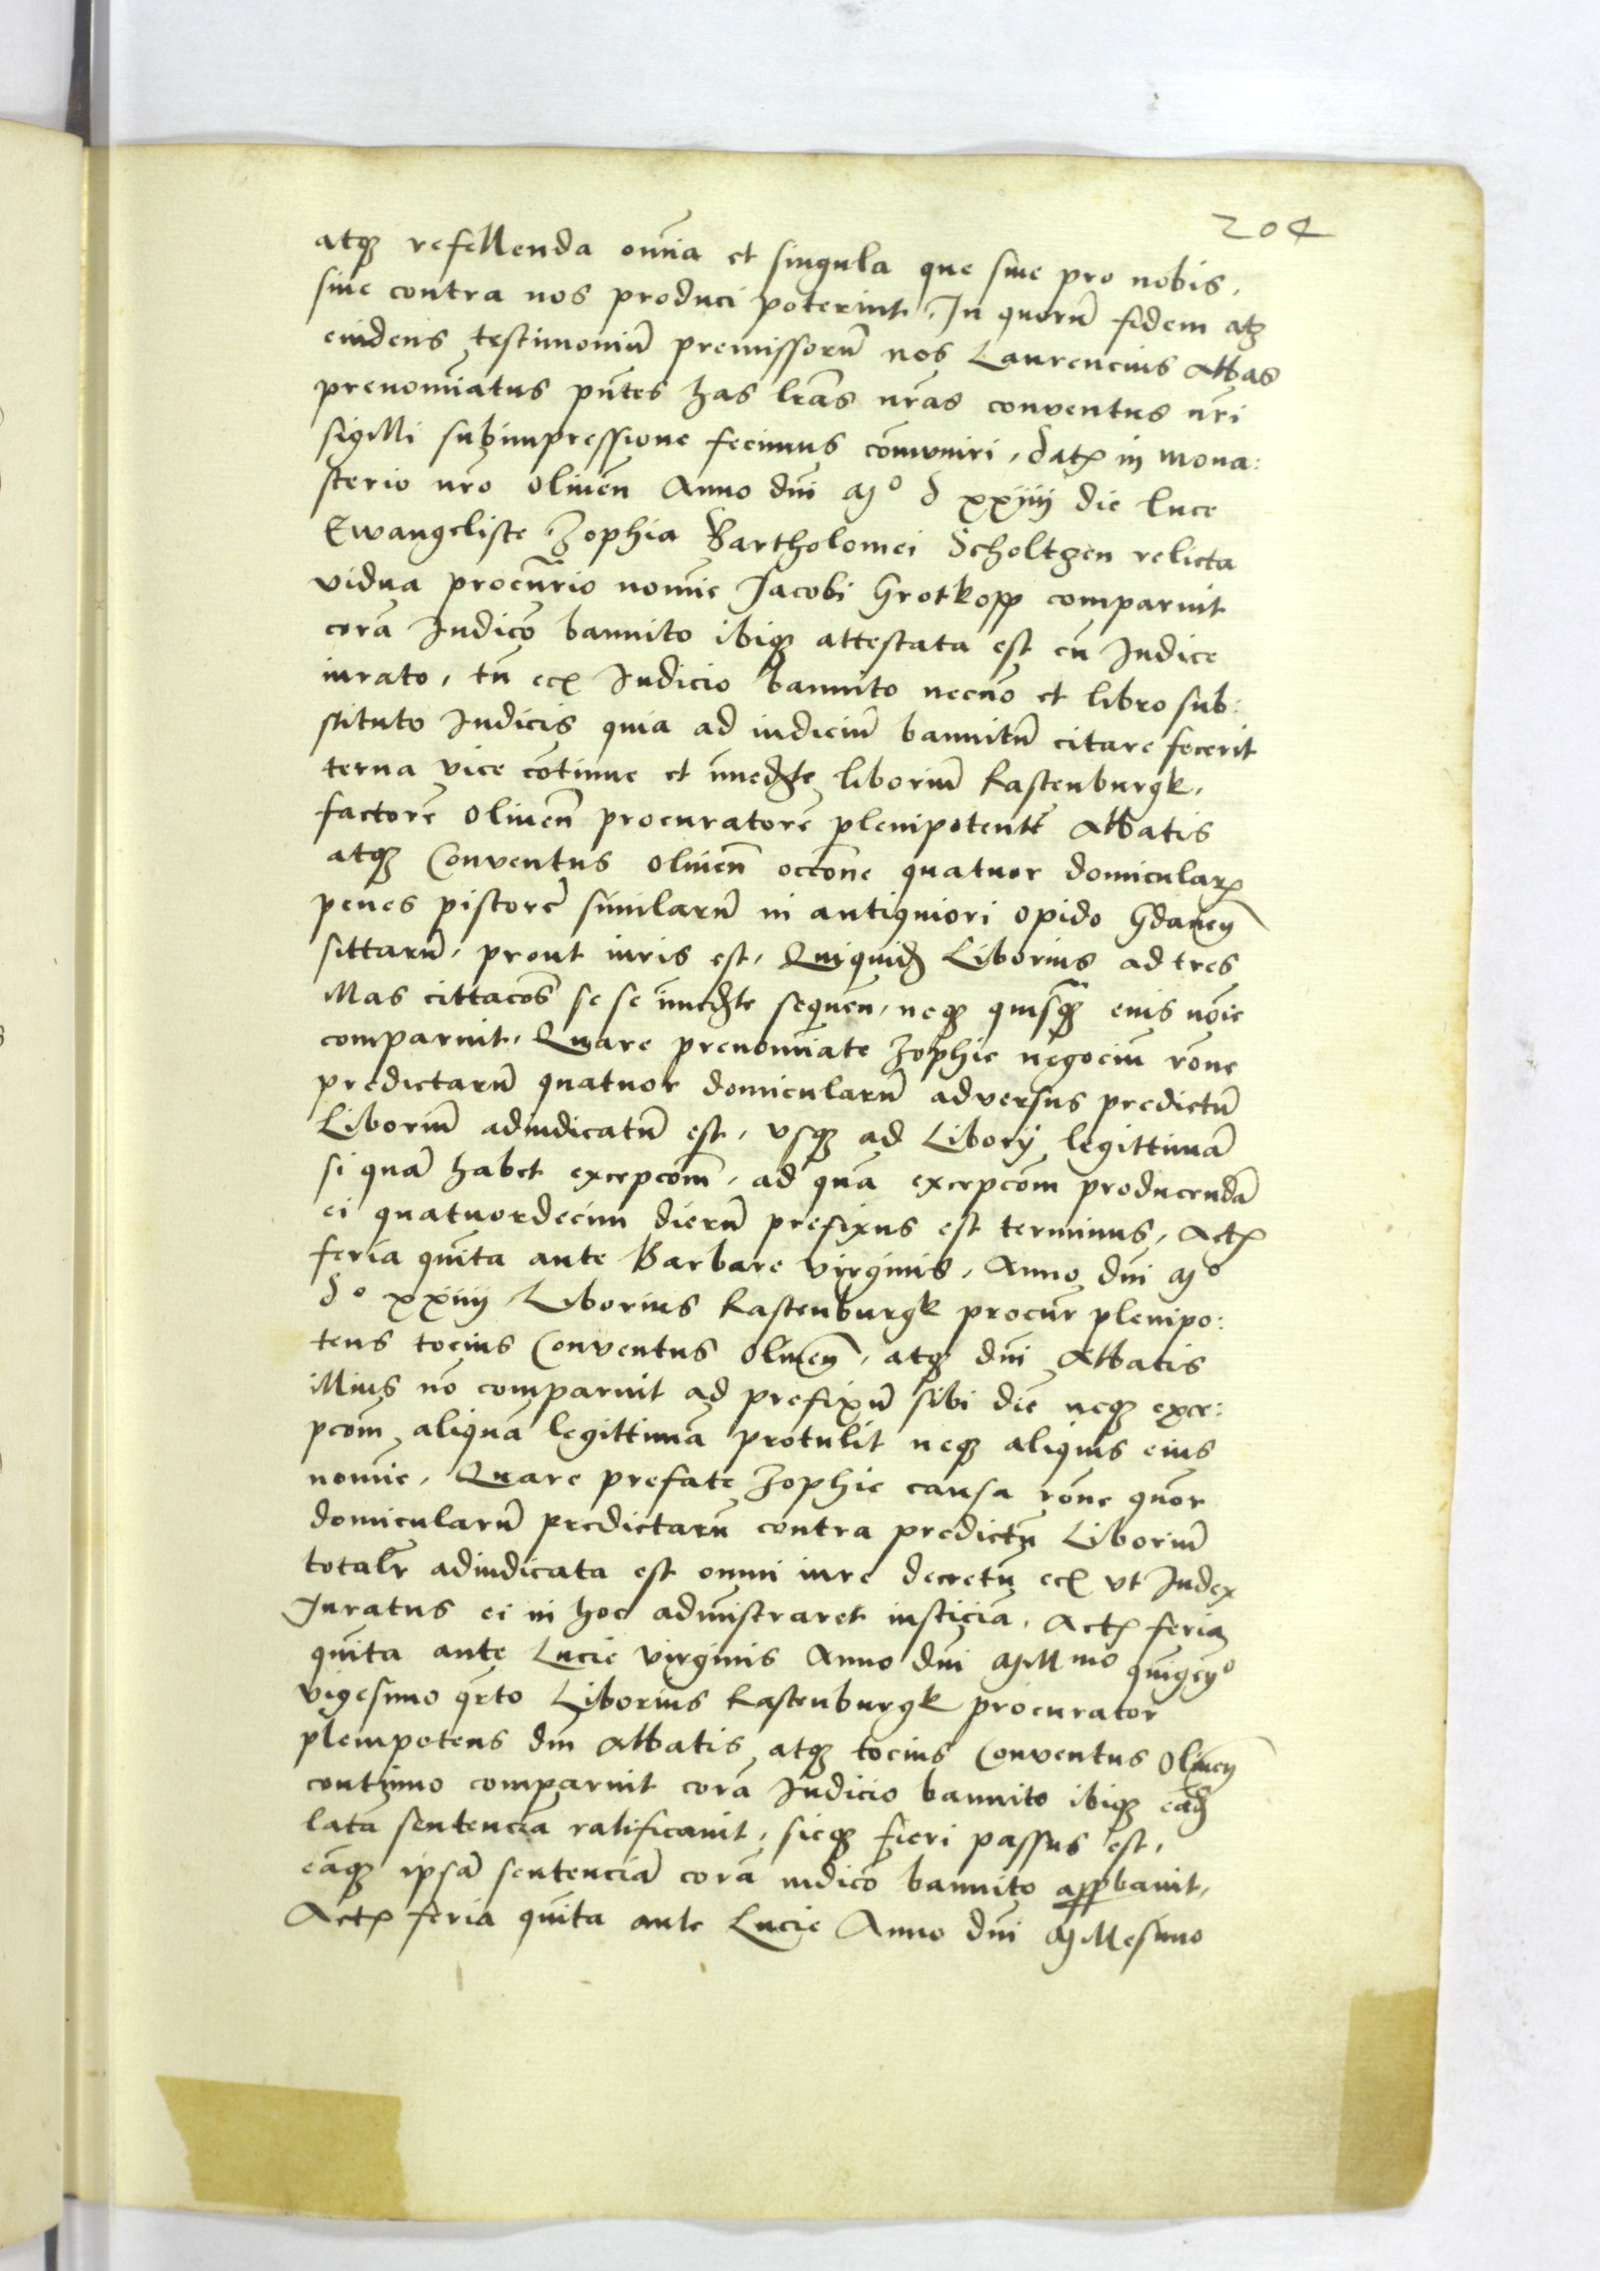 204
atqꝫ refellenda om̄ia et singula que siue pro nobis,
siue contra nos produci poterint. In quorū fidem atqꝫ
euidens testimoniū premissorū nos Laurencius Abbas
prenoīatus pn̄tes has lr̄as nr̄as conuentus nr̄i
sigilli subimpressione fecimus cōmuniri. Datꝫ in mona:
sterio nr̄o oliuen̄ Anno dn̄i Mº D xxiiij die luce
Ewangeliste Zophia Bartholomei Scholtzen relicta
vidua procur̄io noīe Jacobi Grotkopp comparuit
corā Iudicō bannito ibiqꝫ attestata est cū Iudice
iurato, tū ecꝫ Iudicio bannito necnō et libro sub:
stituto Iudicis quia ad iudiciū bannitū citare fecerit
terna vice cōtinue et īmedꝫte liboriū Rastenburgk,
factorē oliuen̄ procuratorē plenipotentē Abbatis
atqꝫ Conuentus oliuen̄ occōne quatuor domicularꝫ
penes pistorē similarū in antiquiori opido Gdanen̄
sittarū, prout iuris est, Quiquidꝫ Liborius ad tres
illas cittacōes se se īmedꝫte sequen̄, neqꝫ quisqꝫ eius noīe
comparuit, Quare prenoīate Zophie negociū rōne
predictarū quatuor domicularū aduersus predictū
Liboriū adiudicatū est, vsqꝫ ad Liborij legittimā
si quā habet excepcōm, ad quā excepcōm producendā
ei quatuordecim dierū prefixus est terminus, Actꝫ
feria quīta ante Barbare virginis, Anno dn̄i Mº
Dº xxiiij Liborius Rastenburgk procur̄ plenipo:
tens tocius Conuentus Oliuen̄, atqꝫ dn̄i Abbatis
illius nō comparuit ad prefixū sibi diē neqꝫ exce:
pcōm aliquā legittimā protulit neqꝫ aliquis eius
noīe, Quare prefate Zophie causa rōne quōr
domicularū predictarū contra predictū Liboriū
totalr̄ adiudicata est omni iure decretū ecꝫ vt Iudex
Iuratus ei in hoc admīstraret iusticiā. Actꝫ feria
quīta ante Lucie virginis Anno dn̄i Mill̄mo quīgen̄º
vigesimo qr̄to Liborius Rastenburgk procurator
plenipotens dn̄i Abbatis atqꝫ tocius Conuentus Oliuen̄
continuo comparuit corā Iudicio bannito ibiqꝫ eādꝫ
latā sentenciā ratificauit, sicqꝫ fieri passus est,
eāqꝫ ipsā sentenciā corā iudicō bannito approbauit,
Actꝫ feria quīta ante Lucie Anno dn̄i Millesimo